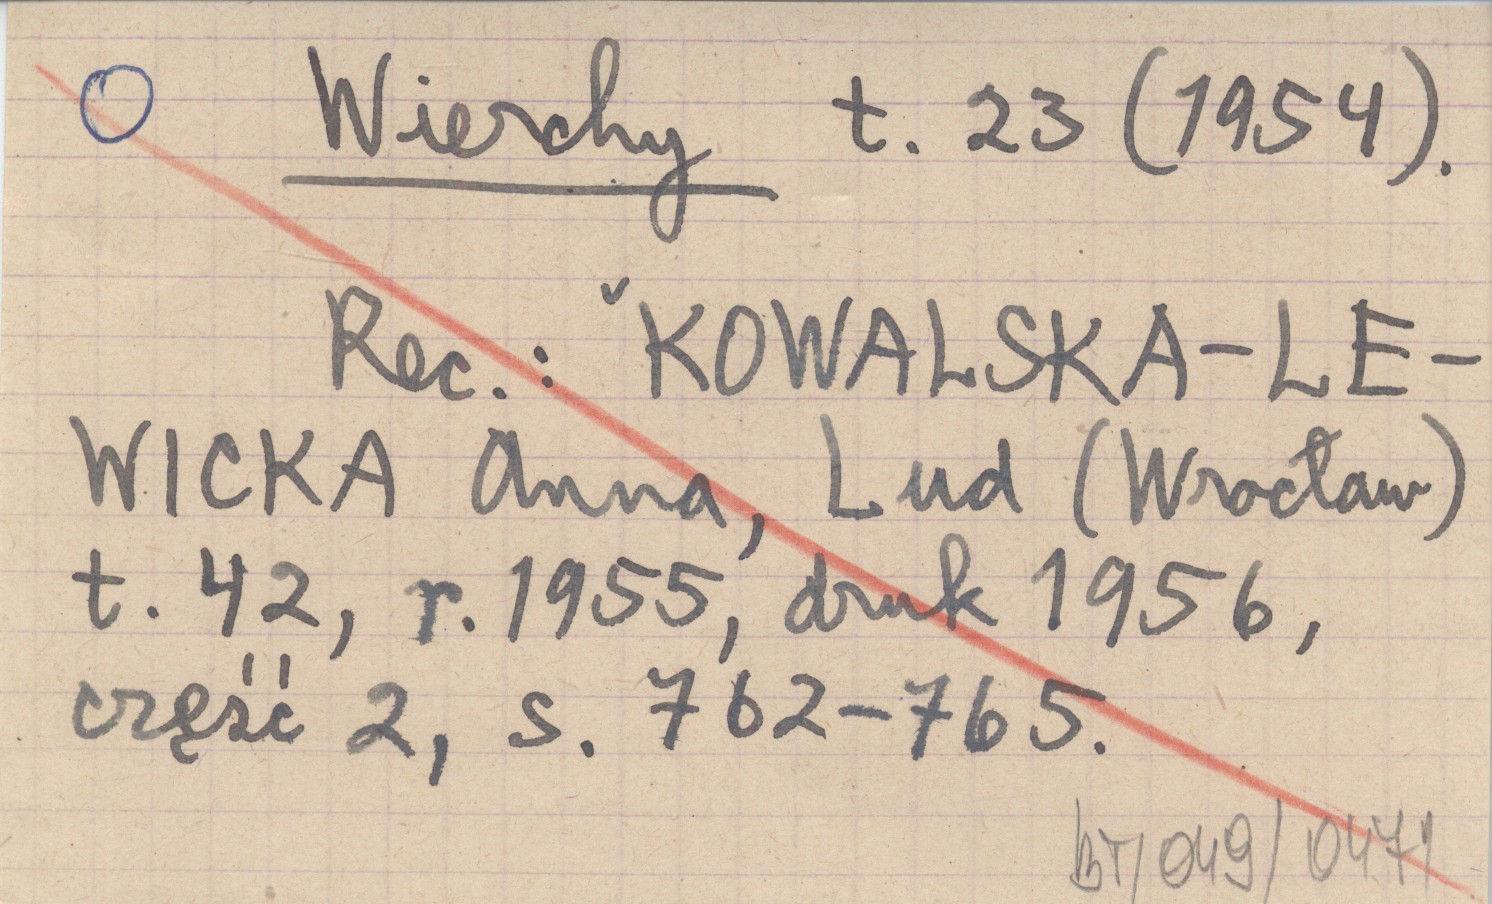 Wierchy t. 23 (1954).
Rec.: ˇKOWALSKA-LE-
WICKA Anna, Lud (Wrocław)
t. 42, r. 1955, druk 1956,
część 2, s. 762-765.
BT/049/0471